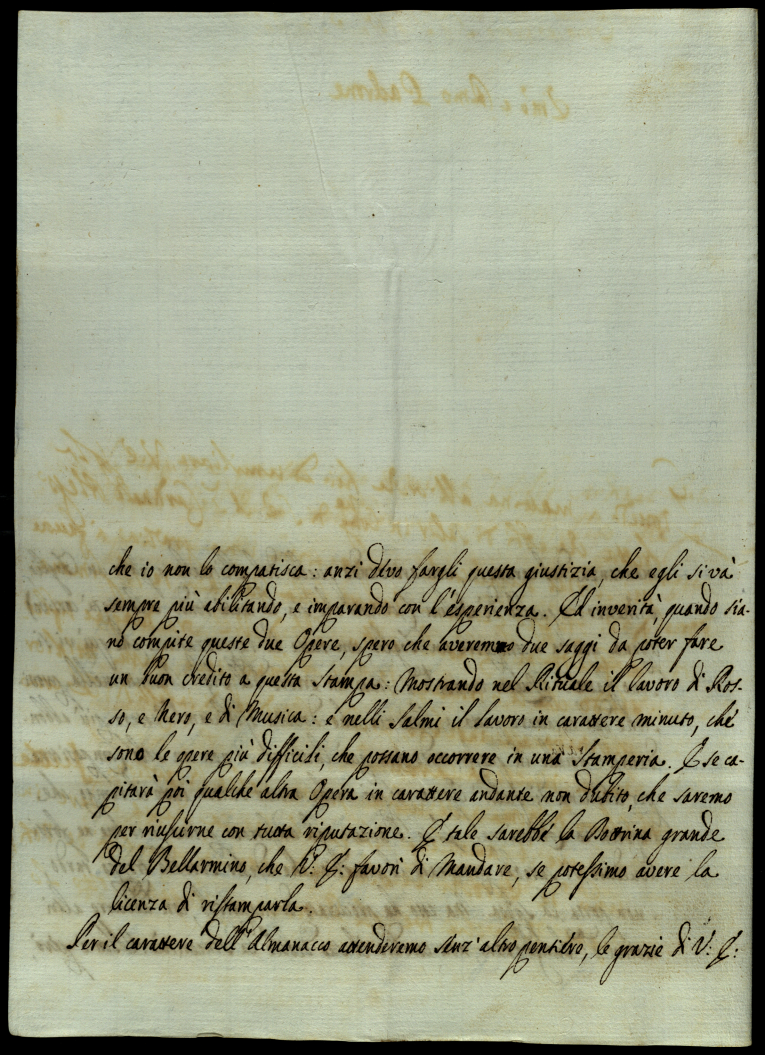 che io non lo compatisca: anzi devo fargli questa giustizia, che egli si và
sempre più abilitando, e imparando con l'esperienza. Ed inverità, quando sia-
no compite queste due Opere, spero che averemo due saggi da poter fare
un buon credito a questa Stampa: Mostrando nel Rituale il lavoro di Ros-
so, e Nero, e di Musica: e nelli Salmi il lavoro in carattere minuto, che
sono le opere più difficili, che possano occorrere in una Stamperia. E se ca-
pitarà poi qualche altra Opera in carattere andante non dubito, che saremo
per riuscirne con tutta riputazione. E tale sarebbe la Dottrina grande
del Bellarmino, che V: E: favorì di Mandare, se potessimo avere la
licenza di ristamparla.
Per il carattere dell'Almanacco attenderemo senz'altro pensiero, le grazie di V: E: